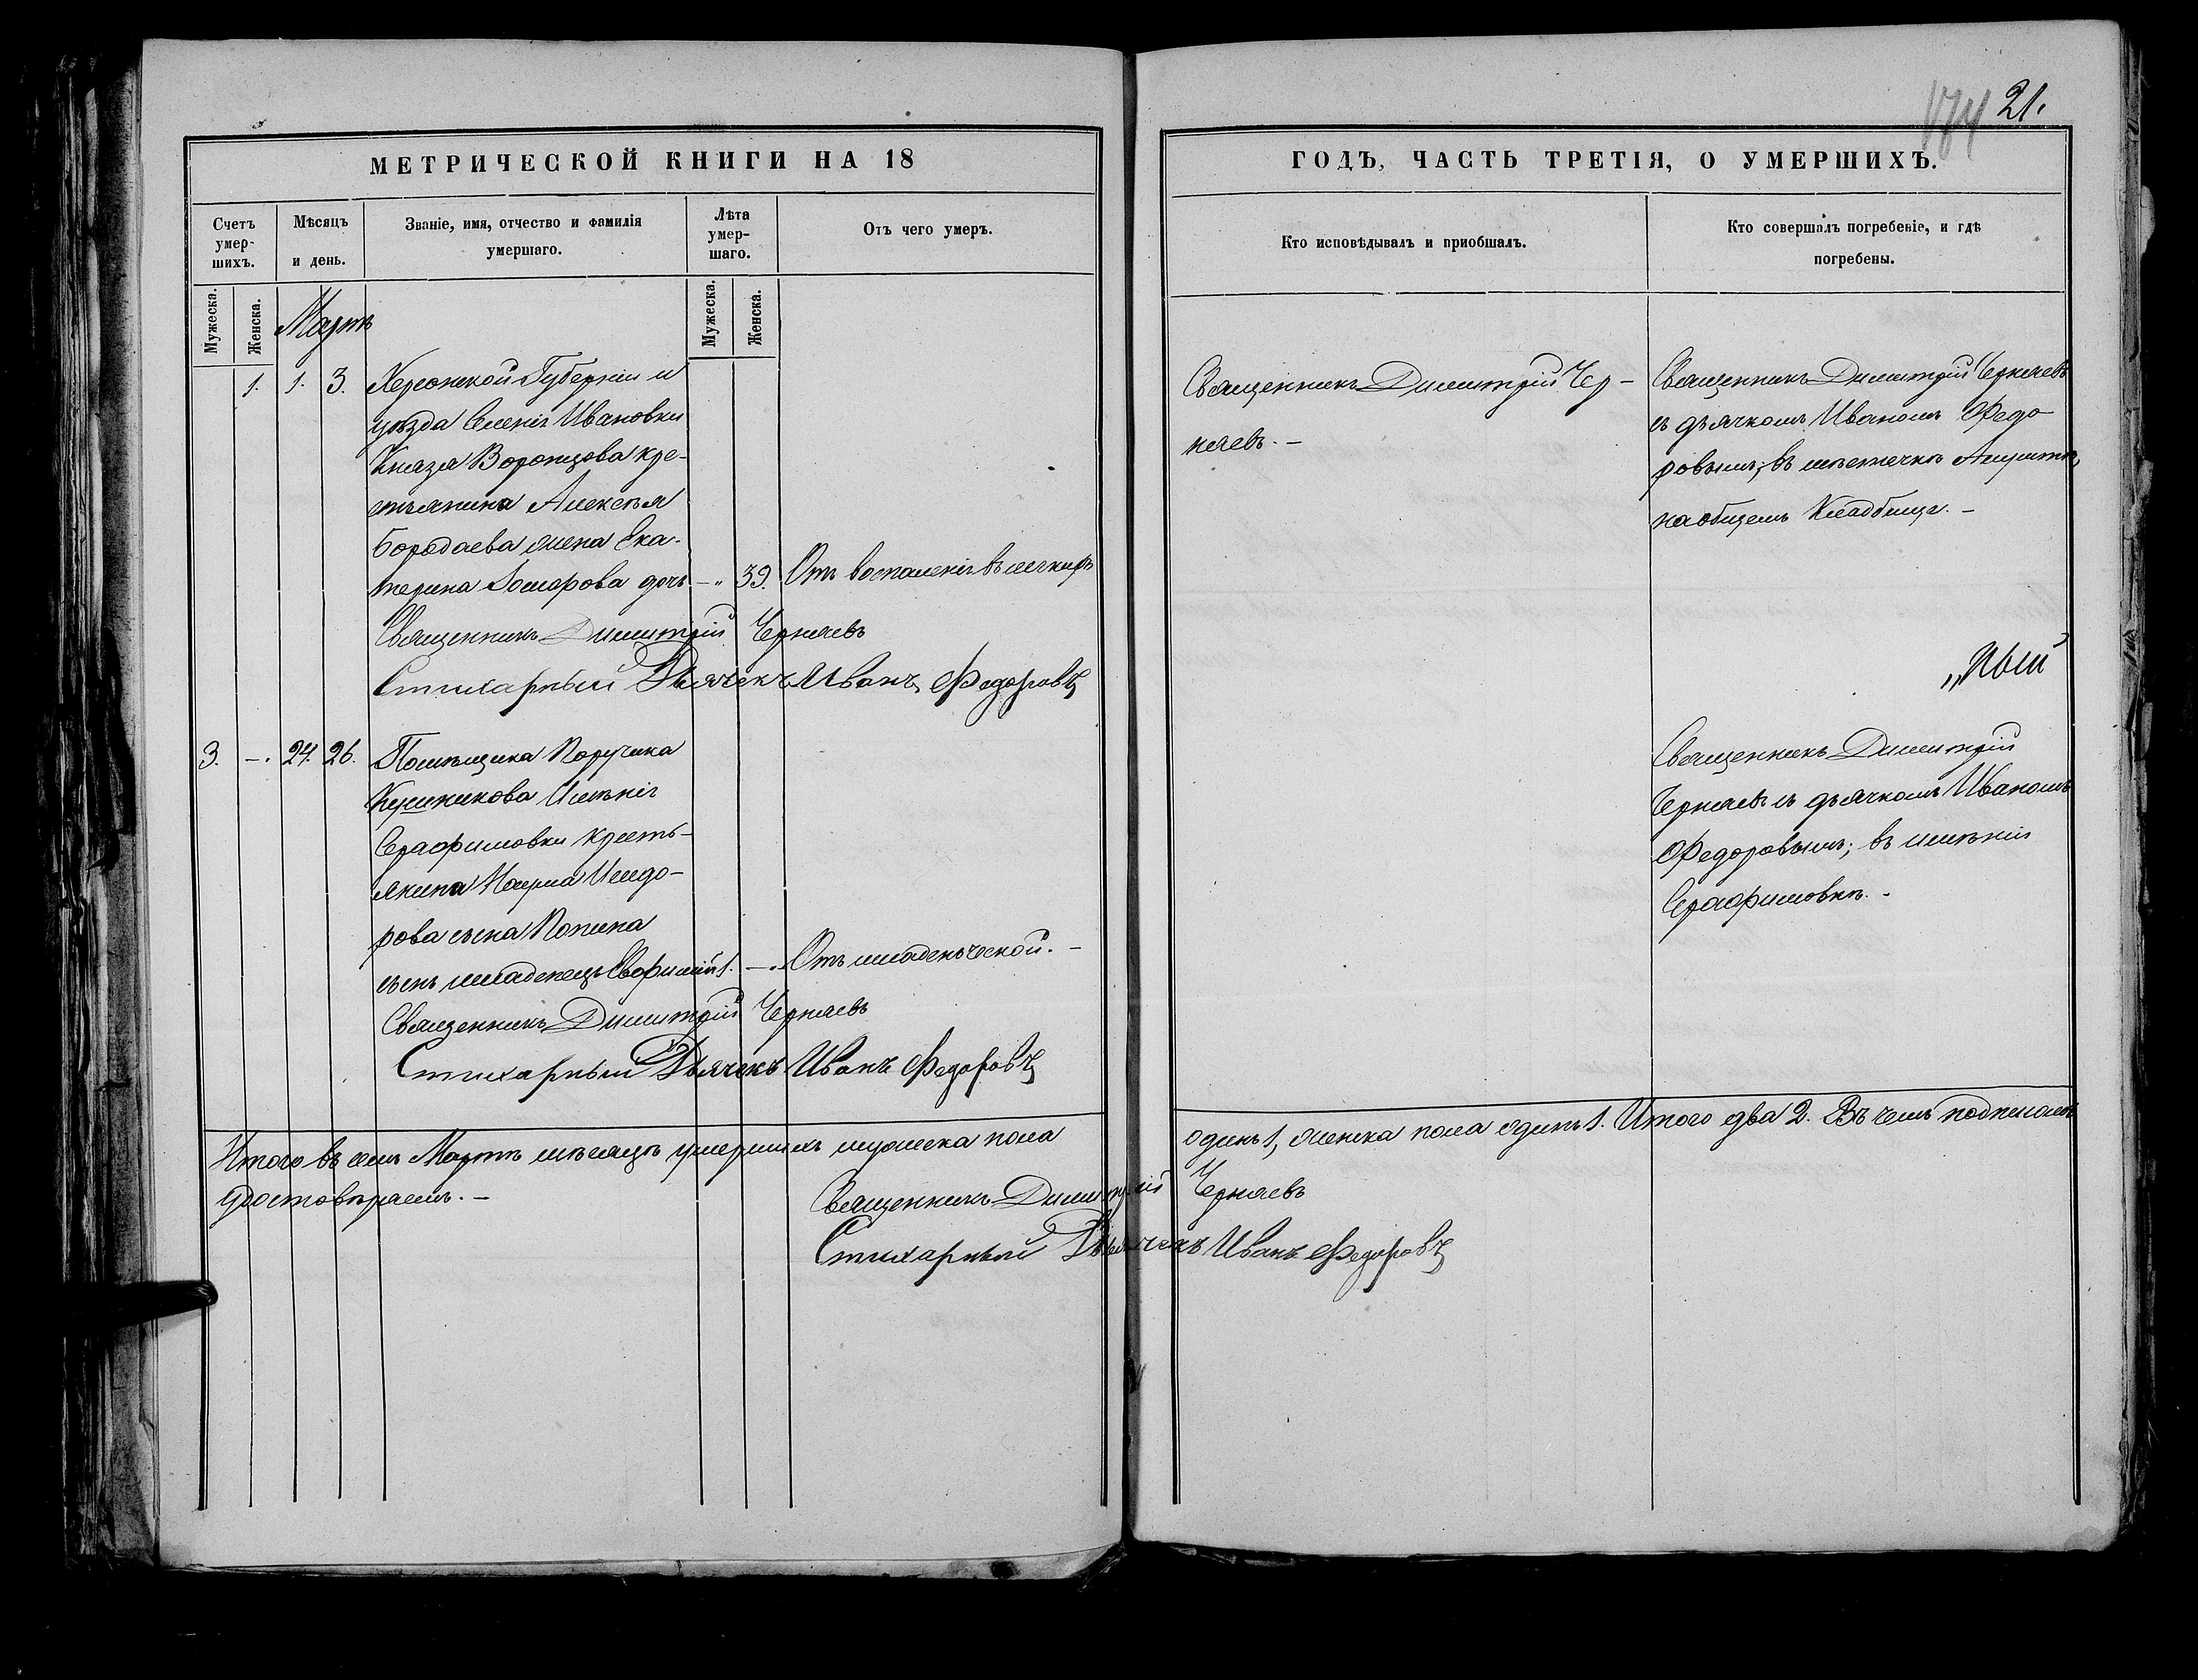 21.
МЕТРИЧЕСКОЙ КНИГИ НА 18
ГОДЪ, ЧАСТЬ ТРЕТІЯ, О УМЕРШИХЪ.
Счетъ умер-
шихъ.
Мѣсяцъ
и день.
Званіе, имя, отчество и фамилія
умершаго.
Лѣта
умер-
шаго.
Отъ чего умеръ.
Кто исповѣдывалъ и пріобщалъ.
Кто совершалъ погребеніе, и гдѣ
погребены.
Мужеска.
Женска.
Мужеска.
Женска.
Мартъ
1. 1. 3. Херсонской Губерніи и
уѣзда Селенія Ивановки
Князя Воронцова кре-
стьянина Алексѣя
Бородаева жена Ека-
терина дочь —„ 39. Отъ воспаленія въ
Священникъ Димитрій Черняевъ
Стихарный Дьячекъ Иванъ Федоровъ
Священникъ Димитрій Чер-
няевъ. —
Священникъ Димитрій Черняевъ
съ дьячкомъ Иваномъ Федо
ровымъ; въ мѣстечкѣ
на общемъ Кладбище. —
3. —. 24. 26. Помѣщика Поручика
Кушникова Имѣнія
Серафимовки кресть-
янина Исидо-
рова сына
сынъ младенецъ Евфимій 1. —. Отъ младенческой. —
Священникъ Димитрій Черняевъ
Стихарный Дьячекъ Иванъ Федоровъ
Священникъ Димитрій
Черняевъ съ дьячкомъ Иваномъ
Федоровымъ; въ имѣніи
Серафимовкѣ. —
Итого въ семъ Мартѣ мѣсяцѣ умершихъ мужеска пола
одинъ 1, женска пола одинъ 1. Итого два 2. Въ чемъ подписомъ
удостовѣряемъ. —
Священникъ Димитрій Черняевъ
Стихарный Дьячекъ Иванъ Федоровъ